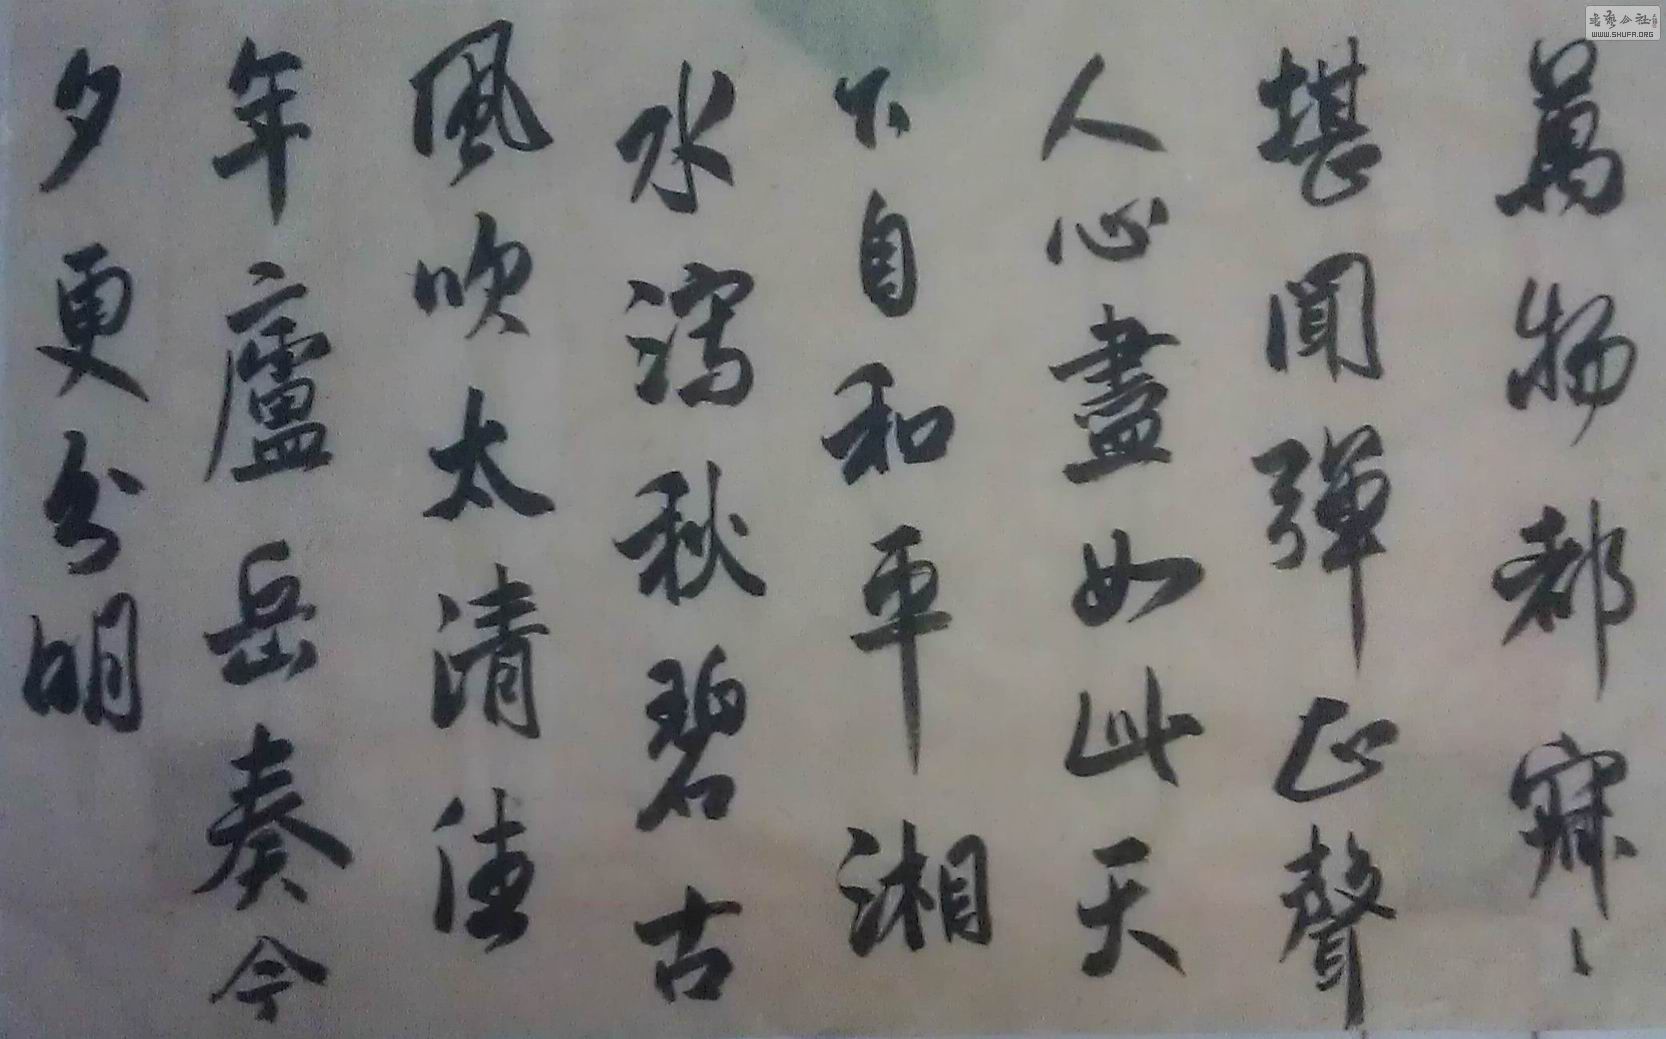 萬物都寂丶
堪聞彈正聲
人心盡如此天
下自和平湘
水瀉秋碧古
風吹太清往
年廬岳奏今
夕更分明
書藝公社
WWW.SHUFA.ORG